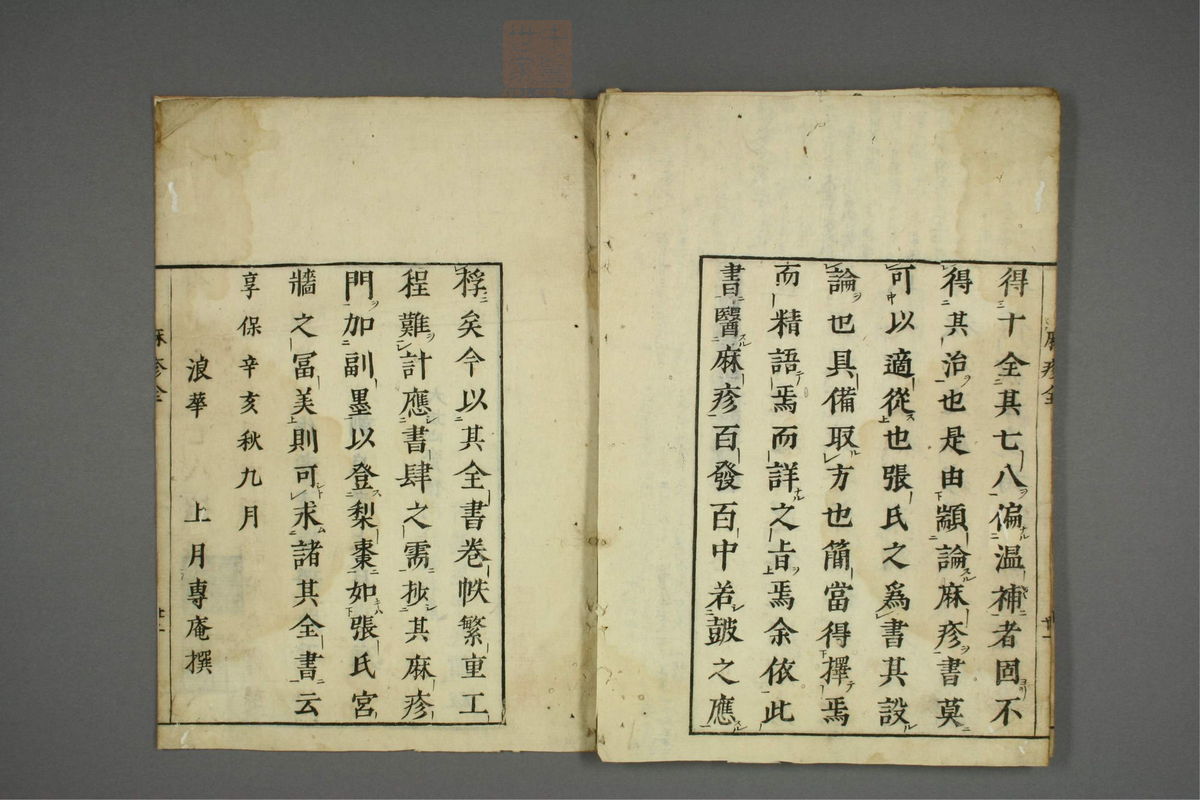 得十全其七八偏温補者固不
得其治也是由顓論麻疹書莫
可以適從也張氏之爲書其設
論也具備取方也簡當得擇焉
而精語焉而詳之旨焉余依此
書醫麻疹百發百中若鼓之應
桴矣今以其全書卷帙繁重工
程難計應書肆之需抄其麻疹
門加副墨以登梨棗如張氏宮
牆之冨美則可求諸其全書云
享保辛亥秋九月
浪華　上月專庵撰
麻疹全